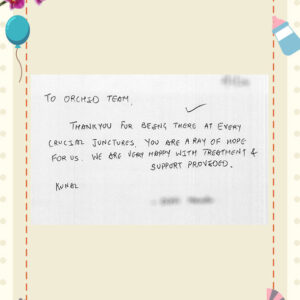 TO ORCHID TEAM,
THANKYOU FOR BEING THERE AT EVERY
CRUCIAL JUNCTURES. YOU ARE A RAY OF HOPE
FOR US. WE ARE VERY HAPPY WITH TREATMENT &
SUPPORT PROVIDED.
KUNAL